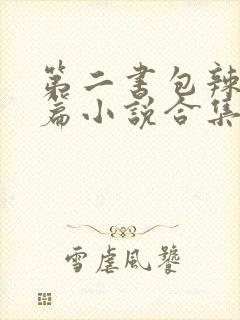 第二书包辣
篇小说合集
雪虐风饕